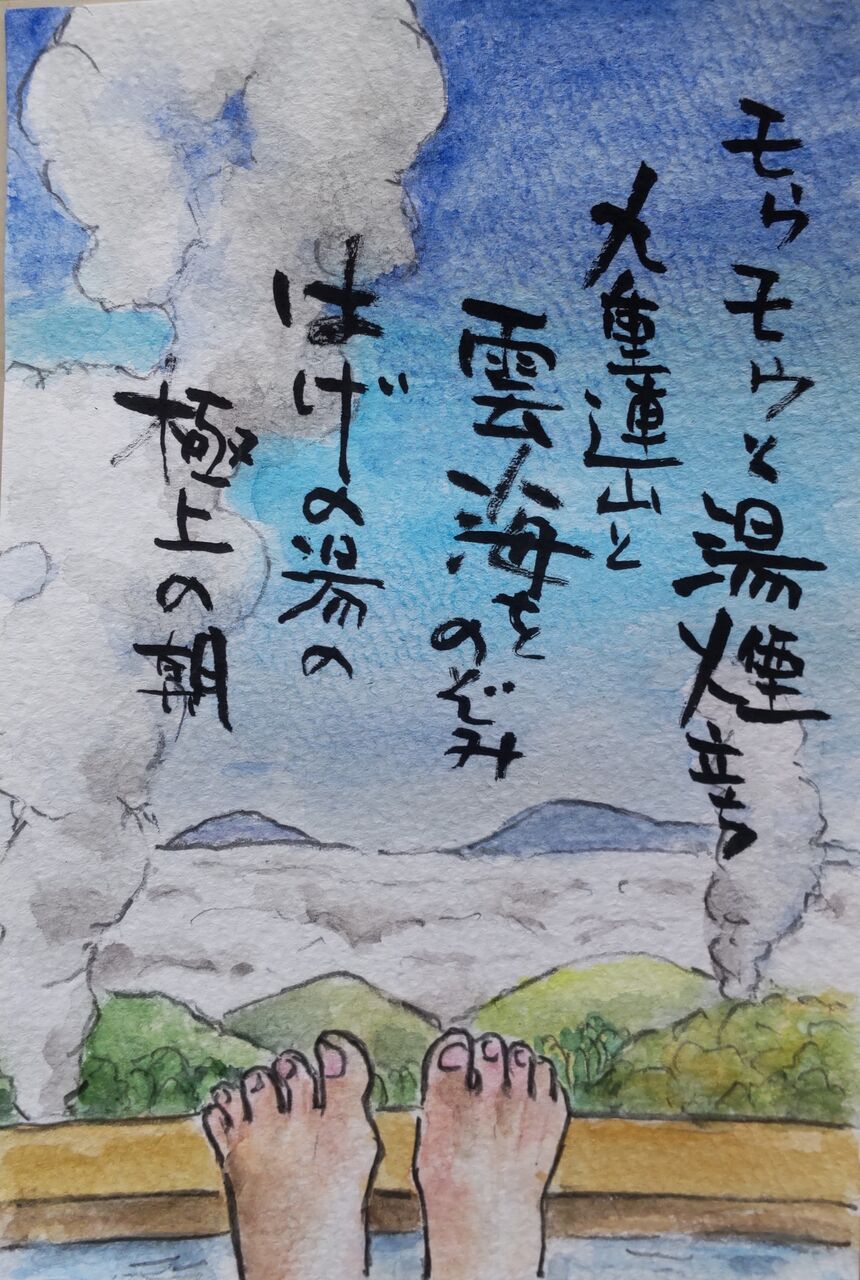 モうモウと湯煙立ち
九重連山と
雲海をのぞみ
はげの湯の
極上の朝